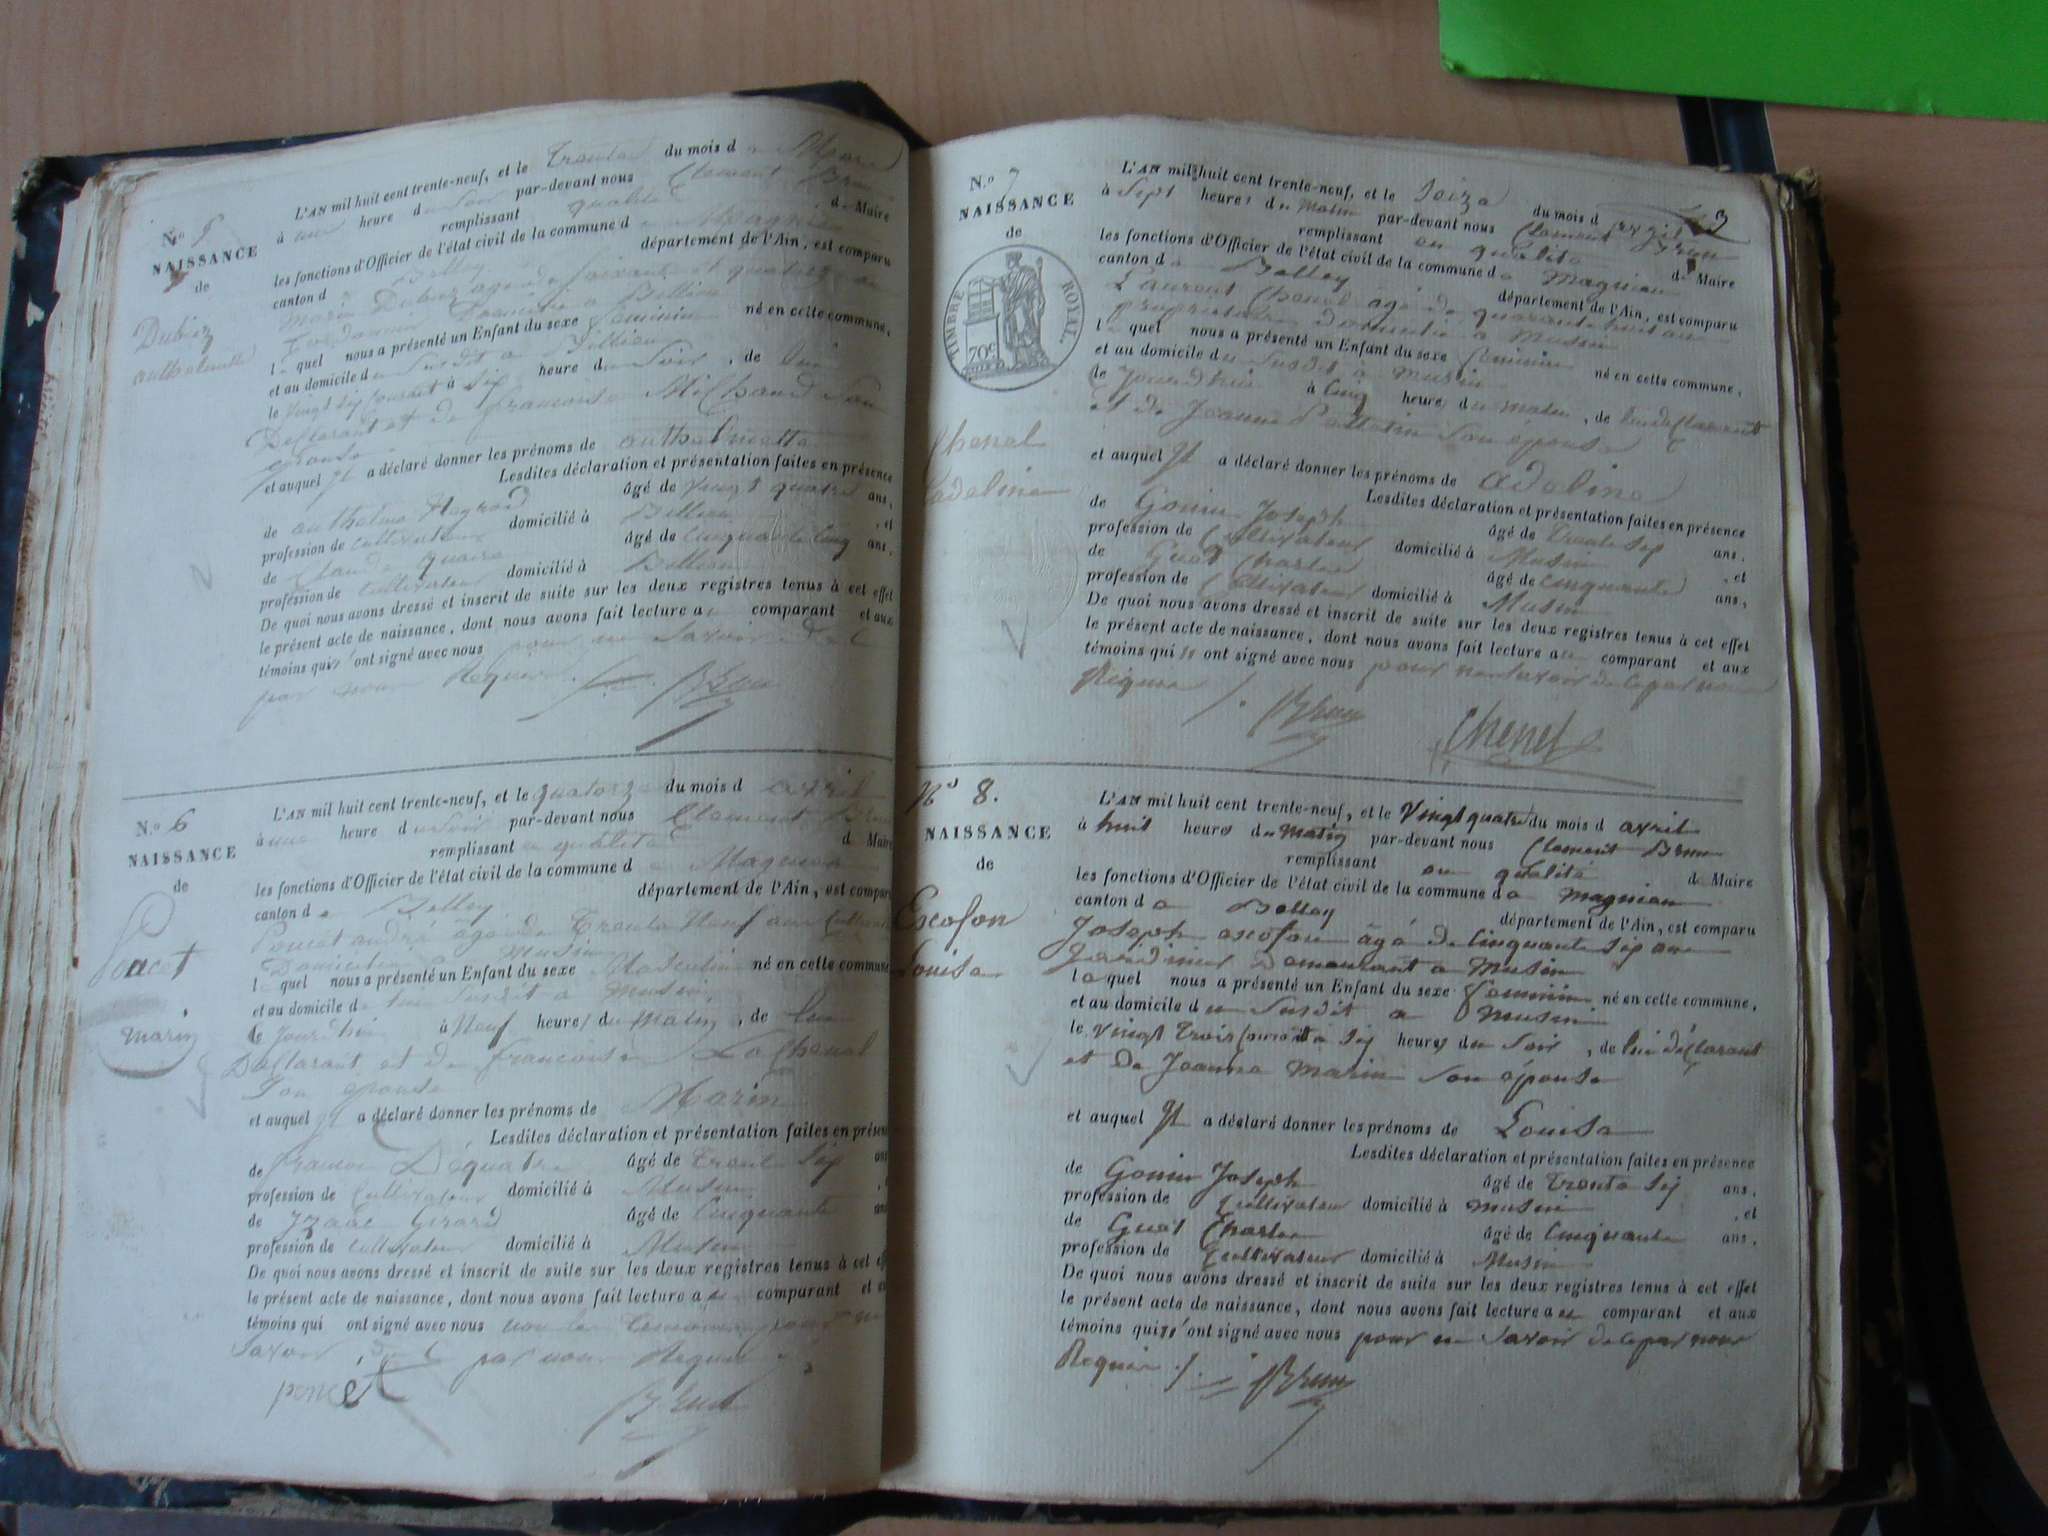 N.º 5
NAISSANCE
de
Dubiez
anthelmette
L'AN mil huit cent trente-neuf, et le Trente du mois d Mars
à une heure du Soir par-devant nous Clement Brun
remplissant qualité de Maire
les fonctions d'Officier de l'état civil de la commune d Magnieu
canton d Belley département de l'Ain, est comparu
Marin Dubiez age de soixante et quatorze an
domicilié a Billieu
l quel nous a présenté un Enfant du sexe feminin né en cette commune,
et au domicile du Susdit a Billieu
le vingt six courant à Six heure du Soir, de lui
Declarant et de francoise Milhaud Son
epouse
et auquel Il a déclaré donner les prénoms de anthelmette
Lesdites déclaration et présentation faites en présence
de anthelme Heyraud âgé de vingt quatre ans,
profession de Cultivateur domicilié à Billieu, et
de Claude âgé de Cinquante Cinq ans,
profession de Cultivateur domicilié à Billieu
De quoi nous avons dressé et inscrit de suite sur les deux registres tenus à cet effet
le présent acte de naissance, dont nous avons fait lecture au comparant et aux
témoins qui n'ont signé avec nous pour ne Savoir de ce
par nous Requis. Brun
N.º 6
NAISSANCE
de
Poncet
Marin
L'AN mil huit cent trente-neuf, et le quatorze du mois d avril
à une heure du Soir par-devant nous Clement Brun
remplissant en qualité d Maire
les fonctions d'Officier de l'état civil de la commune d Magnieu
canton de Belley département de l'Ain, est comparu
Poncet andré agé de Trente Neuf ans Cultivateur
Domicilié a Musin
l quel nous a présenté un Enfant du sexe Masculin né en cette commune
et au domicile du Susdit a Musin
le Jourdhui à Neuf heures du Matin, de lui
Declarant et de francoise La Chenal
Son epouse
et auquel Il a déclaré donner les prénoms de Marin
Lesdites déclaration et présentation faites en présence
de francois Dequatre âgé de trente Six ans
profession de Cultivateur domicilié à Musin
de Izaac Girard âgé de Cinquante ans
profession de Cultivateur domicilié à Musin
De quoi nous avons dressé et inscrit de suite sur les deux registres tenus à cet ef
le présent acte de naissance, dont nous avons fait lecture au comparant et
témoins qui ont signé avec nous non les temoins pour ne
Savoir de ce par nous Requis
poncet
Brun
3
N.º 7
NAISSANCE
de
TIMBRE ROYAL
70c
Chenel
adeline
L'AN mil huit cent trente-neuf, et le Seize du mois d avril
à Sept heures du Matin par-devant nous Clement Brun
remplissant en qualité de Maire
les fonctions d'Officier de l'état civil de la commune de Magnieu
canton de Belley département de l'Ain, est comparu
Laurent Chenel âgé de quarante huit an
propriétaire domicilié a Musin
le quel nous a présenté un Enfant du sexe feminin né en cette commune,
et au domicile du Susdit a Musin
le Jourdhui à Cinq heures du matin, de lui declarant
et de Jeanne Son épouse
et auquel Il a déclaré donner les prénoms de adeline
Lesdites déclaration et présentation faites en présence
de Gonin Joseph âgé de Trente Six ans.
profession de Cultivateur domicilié à Musin, et
de Guat Charles âgé de cinquante ans,
profession de Cultivateur domicilié à Musin
De quoi nous avons dressé et inscrit de suite sur les deux registres tenus à cet effet
le présent acte de naissance, dont nous avons fait lecture au comparant et aux
témoins qui n ont signé avec nous pour ne Savoir de ce par nous
Requis /. Brun Chenel
Nº 8.
NAISSANCE
de
Escofon
Louisa
L'AN mil huit cent trente-neuf, et le Vingt quatre du mois d avril
à huit heures du Matin par-devant nous Clement Brun
remplissant en qualité de Maire
les fonctions d'Officier de l'état civil de la commune de Magnieu
canton de Belley département de l'Ain, est comparu
Joseph escofon âgé de Cinquante Six ans
Jardinier demeurant a Musin
lequel nous a présenté un Enfant du sexe Feminin né en cette commune,
et au domicile du Susdit a Musin
le vingt Trois Courant à Six heures du Soir, de lui déclarant
et de Jeanne Marin Son épouse
et auquel Il a déclaré donner les prénoms de Louisa
Lesdites déclaration et présentation faites en présence
de Gonin Joseph âgé de Trente Six ans,
profession de Cultivateur domicilié à Musin, et
de Guat Charles âgé de Cinquante ans,
profession de Cultivateur domicilié à Musin
De quoi nous avons dressé et inscrit de suite sur les deux registres tenus à cet effet
le présent acte de naissance, dont nous avons fait lecture au comparant et aux
témoins qui n'ont signé avec nous pour ne Savoir de ce par nous
Requis /. Brun